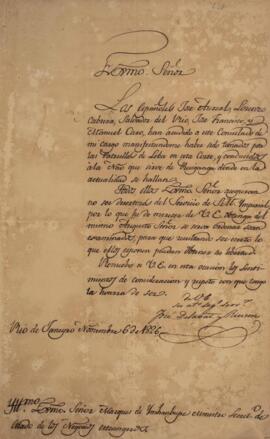 Exmo. Señor
Los Españoles José Arnal, Lorenzo
Cabrera, Salvador del Rio, José Francisco, y
Manuel Caro, han acudido a este Consulado de
mi cargo manifestandome haber sido tomados por
las Patrullas de Leba en esta Corte, y conducidos
à la Nao que sirve de donde en la
actualidad se hallan.
Todos ellos Exmo. Señor aseguran
no ser desertores del Servicio de S.M. Imperial,
por lo que he de merecer de V.E. obtenga del
mismo Augusto Señor, se sirva ordenar sean
examinados, para que resultando ser cierto lo
que ellos esponen puedan obtener su libertad.
Renuebo a V.E. en esta ocasion los sentimientos
de consideracion y respeto con que tengo
la honra de ser
de V.E.
José Delavat y Rincon
Rio de Janeyro Noviembre 6 de 1826
Illmo. Exmo. Señor Marques de Inhambupe Ministro Secret.o de
Estado de los Negocios estrangeros